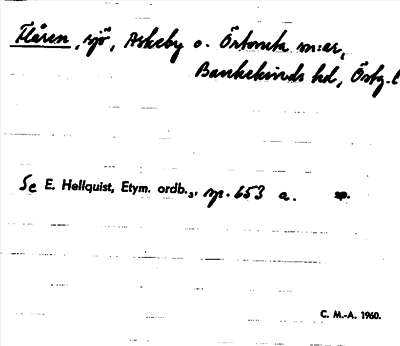 Flåren, sjö, Askeby o. Örtomta m:ar,
Bankekinds hd, Östg.l
Se E. Hellquist, Etym. ordb.3, sp. 653 a. sp.
C. M.-A. 1960.